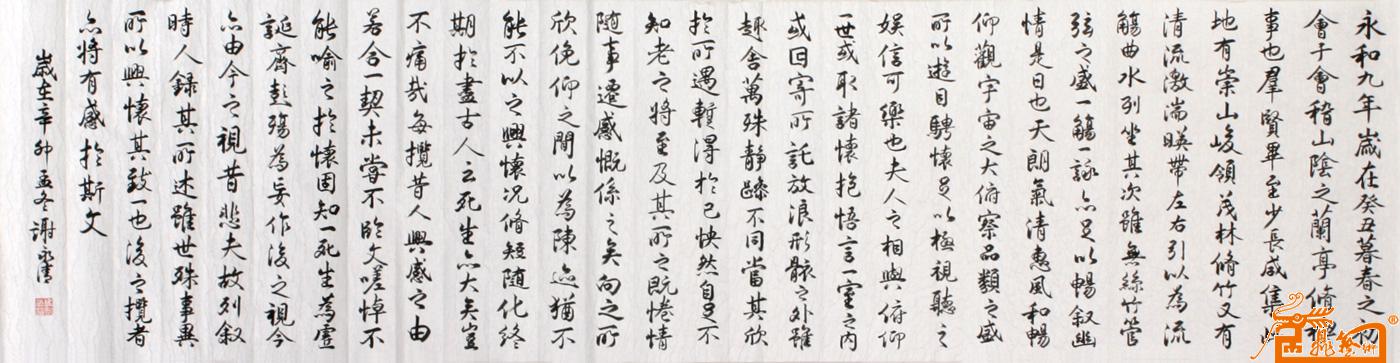 永和九年歲在癸丑暮春之初
會于會稽山陰之蘭亭脩禊
事也羣賢畢至少長咸集此
地有崇山峻領茂林脩竹又有
清流激湍暎帶左右引以為流
觴曲水列坐其次雖無絲竹管
弦之盛一觴一詠亦足以暢叙幽
情是日也天朗氣清惠風和暢
仰觀宇宙之大俯察品類之盛
所以遊目騁懷足以極視聽之
娛信可樂也夫人之相與俯仰
世或取諸懷抱悟言一室之內
或因寄所託放浪形骸之外雖
趣舍萬殊靜躁不同當其欣
於所遇暫得於己快然自足不
知老之將至及其所之既惓情
随事遷感慨係之矣向之所
欣俛仰之間以為陳迹猶不
能不以之興懷況脩短随化終
期於盡古人云死生亦大矣豈
不痛哉每攬昔人興感之由
若合一契未嘗不臨文嗟悼不
能喻之於懷固知一死生為虛
誕齊彭殤為妄作後之視今
亦由今之視昔悲夫故列叙
時人錄其所述雖世殊事異
所以興懷其致一也後之攬者
亦將有感於斯文
歲在辛卯孟冬謝永清